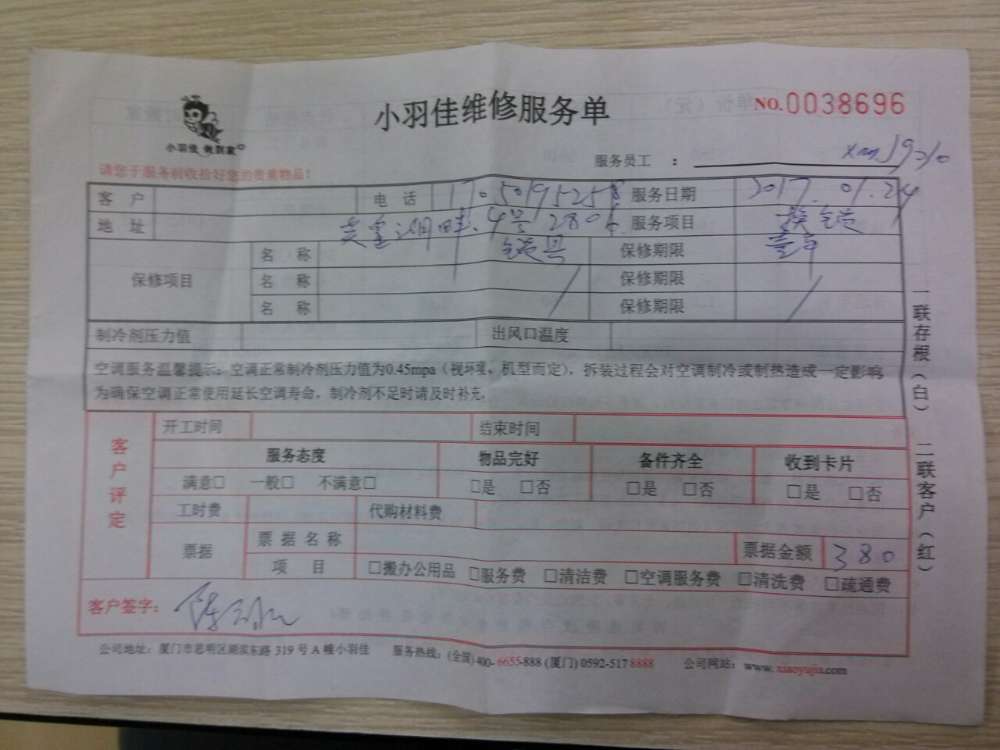 小羽佳维修服务单
NO.0038696
小羽佳 做到家
服务员工 :
请您于服务前收拾好您的贵重物品!
客 户 电 话 服务日期 2017.01.24
地 址 4号2806 服务项目 换锁
保修项目 名 称 锁具 保修期限 壹年
名 称 保修期限
名 称 保修期限
制冷剂压力值 出风口温度
空调服务温馨提示:空调正常制冷剂压力值为0.45mpa(视环境,机型而定),拆装过程会对空调制冷或制热造成一定影响,
为确保空调正常使用延长空调寿命,制冷剂不足时请及时补充.
一联存根(白) 二联客户(红)
客户评定
开工时间 结束时间
服务态度 物品完好 备件齐全 收到卡片
满意□ 一般□ 不满意□ □是 □否 □是 □否 □是 □否
工时费 代购材料费
票据 票据名称 票据金额 380
项 目 □搬办公用品 □服务费 □清洁费 □空调服务费 □清洗费 □疏通费
客户签字:
公司地址:厦门市思明区湖滨东路 319 号 A 幢小羽佳 服务热线:(全国)400-6655-888 (厦门) 0592-5178888 公司网站:www.xiaoyujia.com